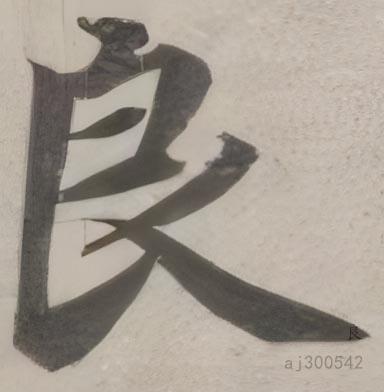 良
aj300542